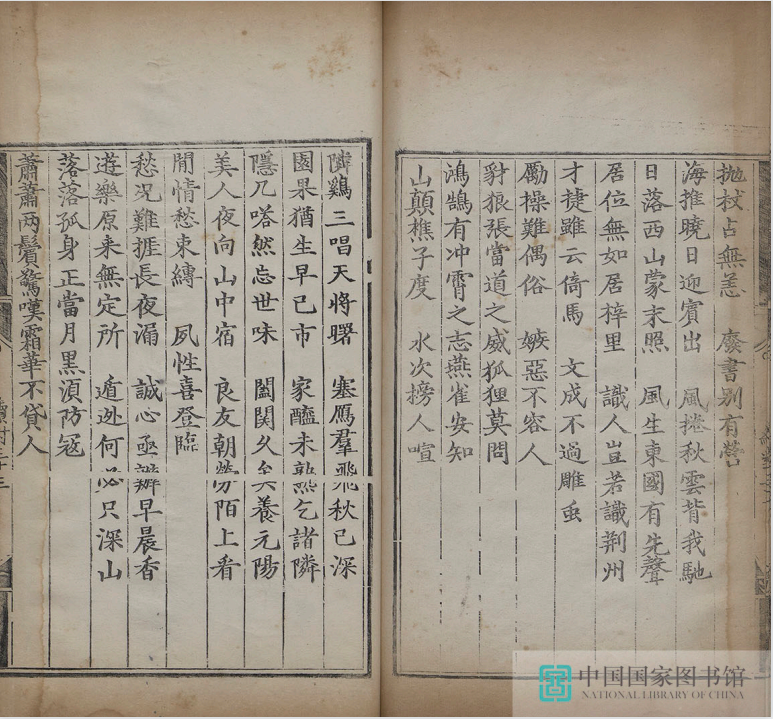 抛杖占無恙　廢書别有營
海推曉日迎賓出　風捲秋雲背我馳
日落西山蒙末照　風生東國有先聲
居位無如居梓里　識人豈若識荆州
才捷雖云倚馬　文成不過雕虫
勵操難偶俗　嫉惡不容人
豺狼張當道之威狐狸莫問
鴻鵠有冲霄之志燕雀安知
山顛樵子度　水次榜人喧
隣鷄三唱天將曙　塞鴈羣飛秋已深
園果猶生早已市　家醯未熟乞諸隣
隱几嗒然忘世味　閫関久矣養元陽
美人夜向山中宿　良友朝勞陌上看
閒情愁束縛　夙性喜登臨
愁况難捱長夜漏　誠心亟辦早晨香
遊樂原来無定所　遁迯何必只深山
落落孤身正當月黒湏防冦
蕭蕭两鬢驚嘆霜華不貸人
中国国家图书馆
NATIONAL LIBRARY OF CHINA